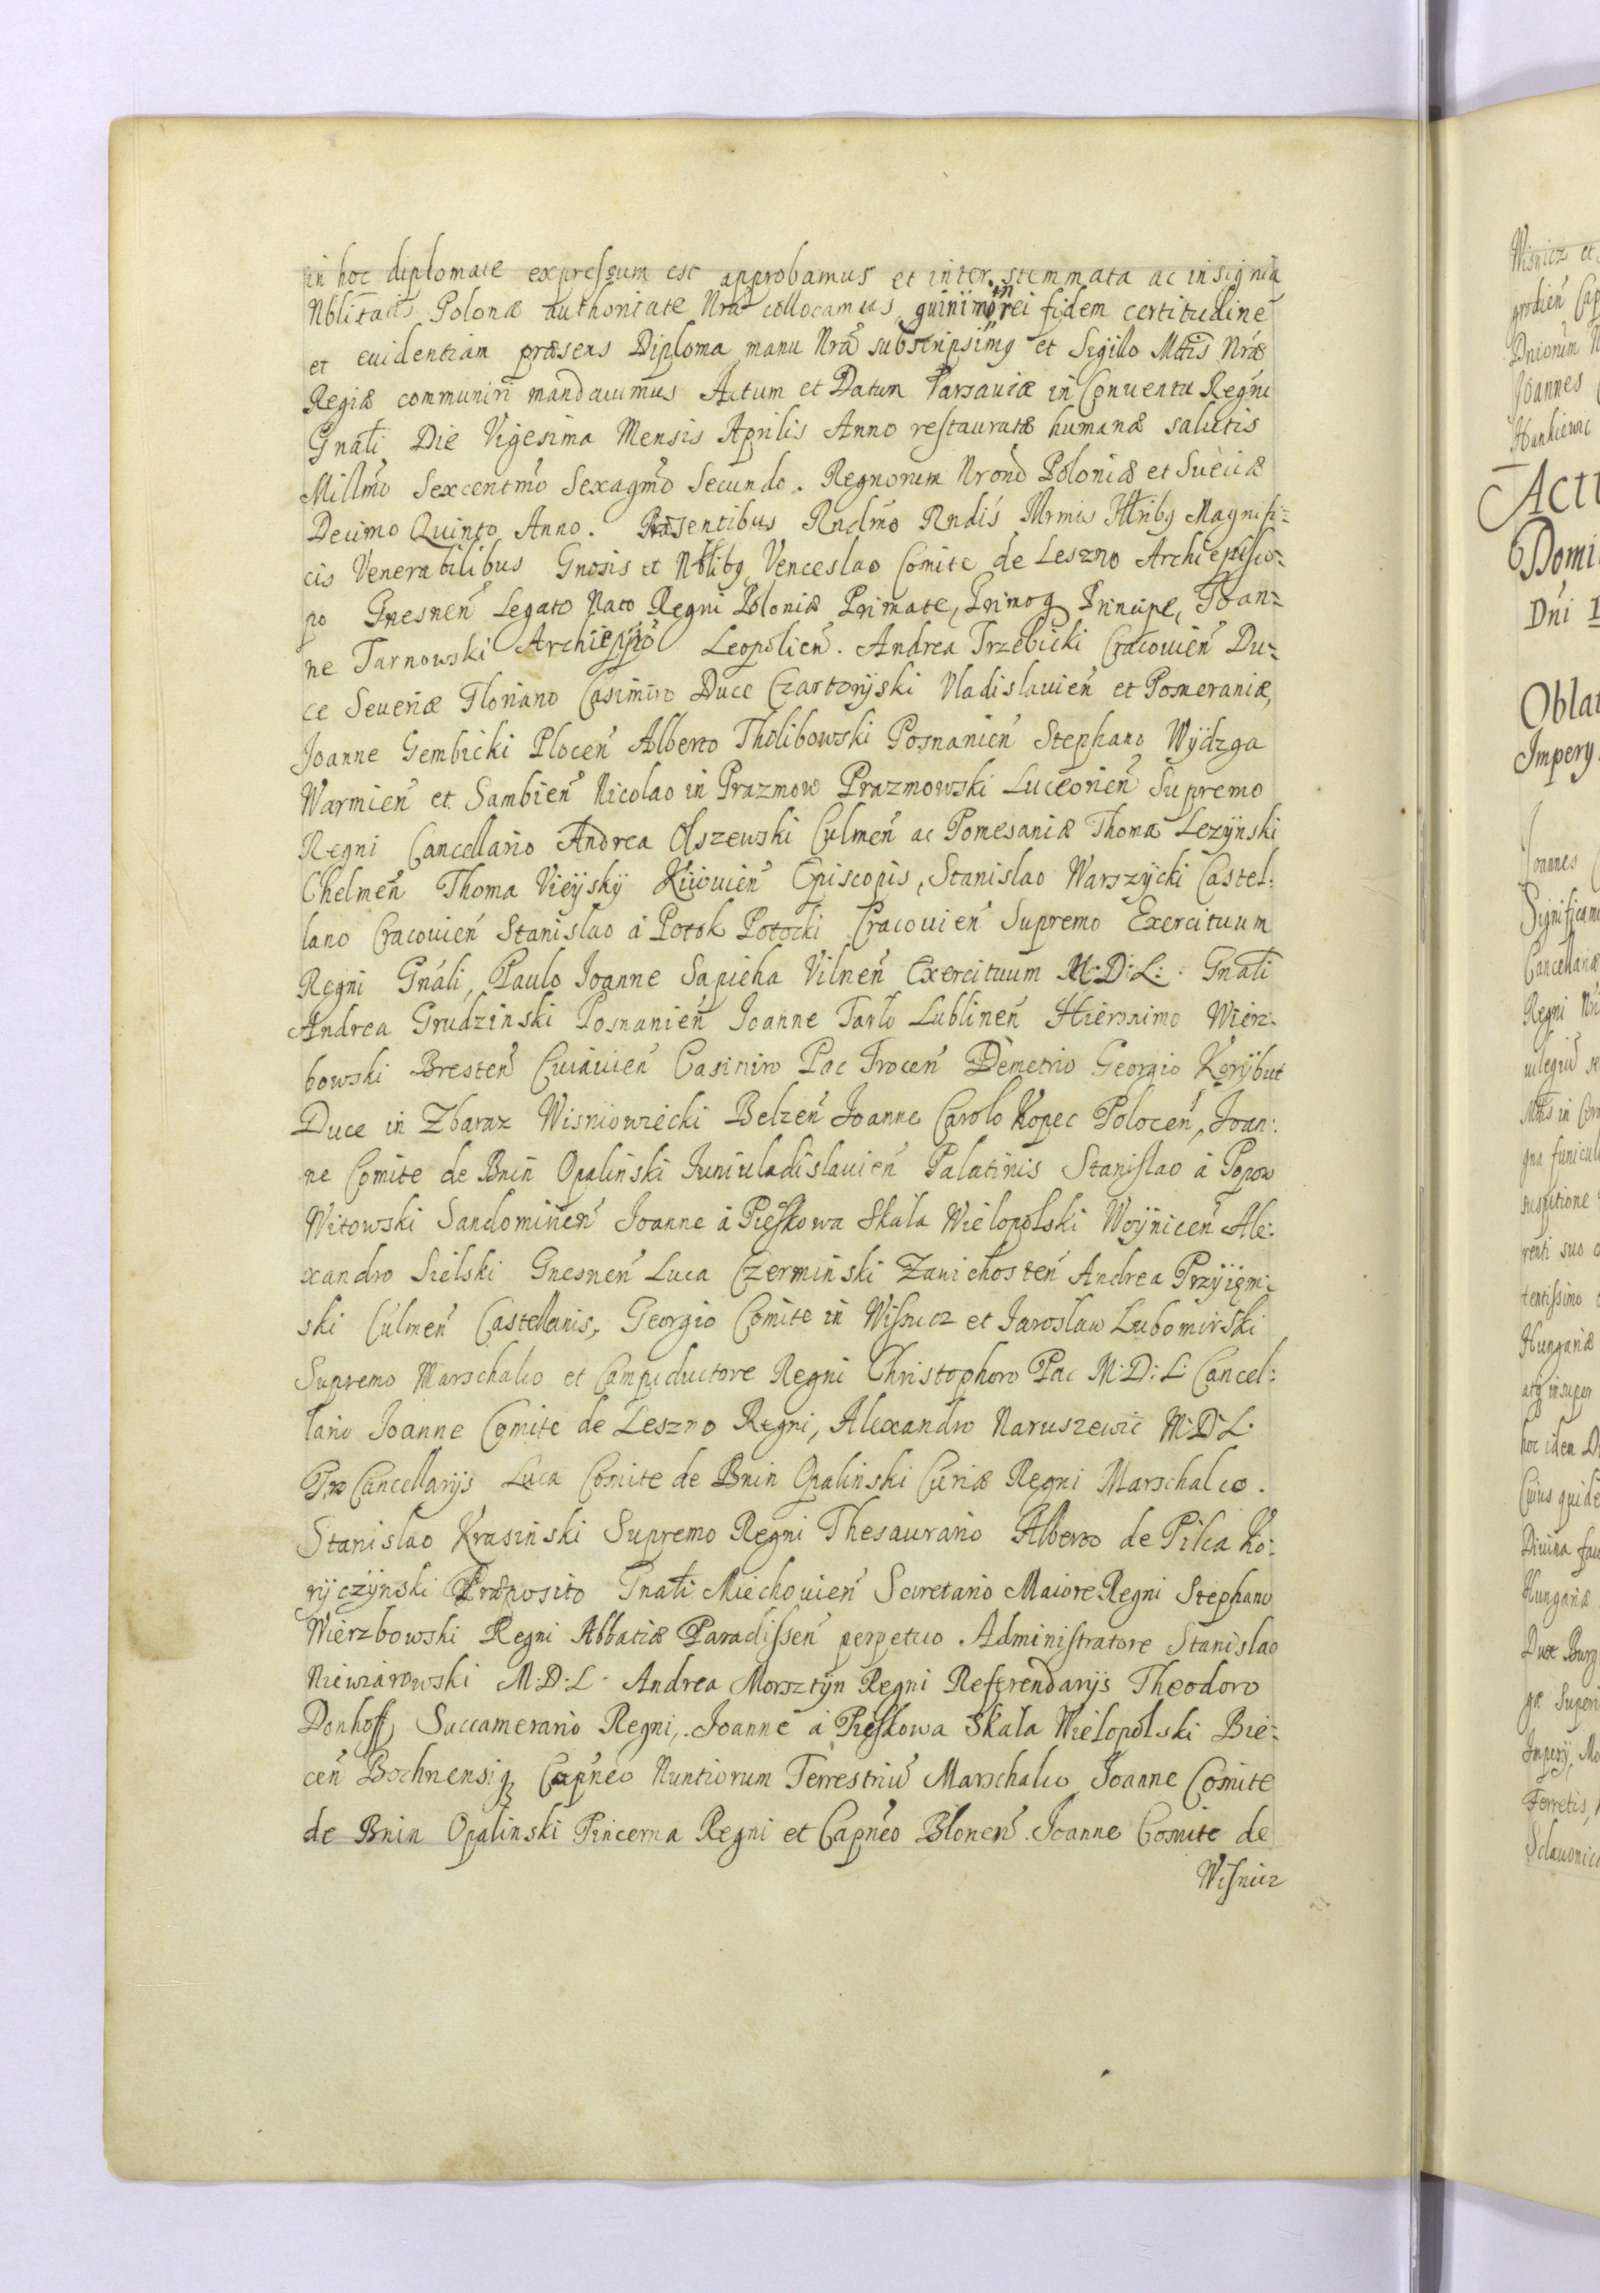 in hoc diplomate expressum est approbamus et inter stemmata ac insignia
Nblitatis Polonæ authoritate Nrā collocamus, quinimo in rei fidem certitudinē
et euidentiam præsens Diploma manu Nrā subscripsimq et Sigillo Mttis Nræ
Regiæ communiri mandauimus Actum et Datum Varsauiæ in Conuentu Regni
Gnáli Die Vigesima Mensis Aprilis Anno restauratæ humanæ salutis
Millmō Sexcentmō Sexagmō Secundo. Regnorum Nronō Poloniæ et Sueciæ
Decimo Quinto Anno. Præsentibus Rndmō Rndis Illrmis Illribq Magnifi-
cis Venerabilibus Gnosis et Nblibq Venceslao Comite de Leszno Archiepisco-
po Gnesnen̄ Legato Nato Regni Poloniæ Primate, Primoq Principe, Joan-
ne Tarnowski Archieppō Leopolien̄. Andrea Trzebicki Cracouien̄ Du-
ce Seueriæ Floriano Casimiro Duce Czartorÿski Vladislauien̄ et Pomeraniæ,
Joanne Gembicki Plocen̄ Alberto Tholibowski Posnanien̄ Stephano Wÿdzga
Warmien̄ et Sambien̄ Nicolao in Prazmow Prazmowski Luceorien̄ Supremo
Regni Cancellario Andrea Olszewski Culmen̄ ac Pomesaniæ Thoma Lezÿnski
Chelmen̄ Thoma Vieÿskÿ Kiiouien̄ Episcopis, Stanislao Warszÿcki Castel:
lano Cracouien̄ Stanislao á Potok Potocki Cracouien̄ Supremo Exercituum
Regni Gnáli, Paulo Joanne Sapieha Vilnen̄ Exercituum M:D:L: Gnáli
Andrea Grudzinski Posnanien̄ Joanne Tarło Lublinen̄ Hieronimo Wierz-
bowski Bresten̄ Cuiauien̄ Casimiro Pac Trocen̄ Demetrio Georgio Korÿbut
Duce in Zbaraz Wisniowiecki Belzen̄ Joanne Carolo Kopec Polocen̄, Joan:
ne Comite de Bnin Opalinski Juniuladislauien̄ Palatinis Stanislao á Popow
Witowski Sandomirien̄ Joanne á Pieskowa Skała Wielopolski Woÿnicen̄ Ale:
xandro Sielski Gnesnen̄ Luca Czerminski Zawichosten̄ Andrea Przÿięm:
ski Culmen̄ Castellanis, Georgio Comite in Wisnicz et Jaroslaw Lubomirski
Supremo Marschalco et Campiductore Regni Christophoro Pac M:D:L: Cancel:
lario Joanne Comite de Leszno Regni, Alexandro Naruszewic M:D:L:
Pro Cancellarÿs Luca Comite de Bnin Opalinski Curiæ Regni Marschalco.
Stanislao Krasinski Supremo Regni Thesaurario Alberto de Pilca Ko:
rÿczÿnski Præposito Gnáli Miechouien̄ Secretario Maiore Regni Stephano
Wierzbowski Regni Abbatiæ Paradissen̄ perpetuo Administratore Stanislao
Niewiarowski M:D:L: Andrea Morsztÿn Regni Referendarÿs Theodoro
Donhoff, Succamerario Regni, Joanne á Pieskowa Skała Wielopolski Bie:
cen̄ Bochnensiq Capnéo Nuntiorum Terrestriū Marschalco, Joanne Comite
de Bnin Opalinski Pincerna Regni et Capnéo Blonen̄. Joanne Comite de
Wisnicz
Wisnicz et
Dniorum
Joannes
Hankiewic
Actt
Domi
Dni 1
Oblat
Impery
Joannes
Significam
Cancellariæ
Regni
Mttis in
gna funicul
suspitione
renti suo
tentissimo
Hungariæ
atq insuper
hoc idem
Cuius quide
Diuina fau
Hungariæ
Dux Burg
gæ Superi
Imperÿ, Mo
Ferretis,
Sclauonica